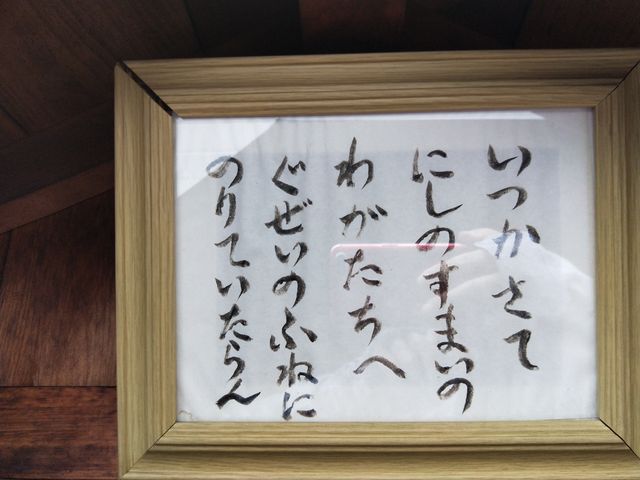 いつかさて
にしのすまいの
わがたちへ
ぐぜいのふねに
のりていたらん